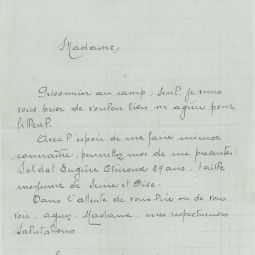 Madame,
Prisonnier au camp, seul, je viens
vous prier de vouloir bien m'agréer pour
filleul.
Avec l'espoir de me faire mieux
connaître, permettez moi de me présenter:
Soldat Eugène 29 ans, taille
moyenne de Seine et Oise.
Dans l'attente de vous lire ou de vous
voir, agréez, Madame, mes respectueuses
salutations